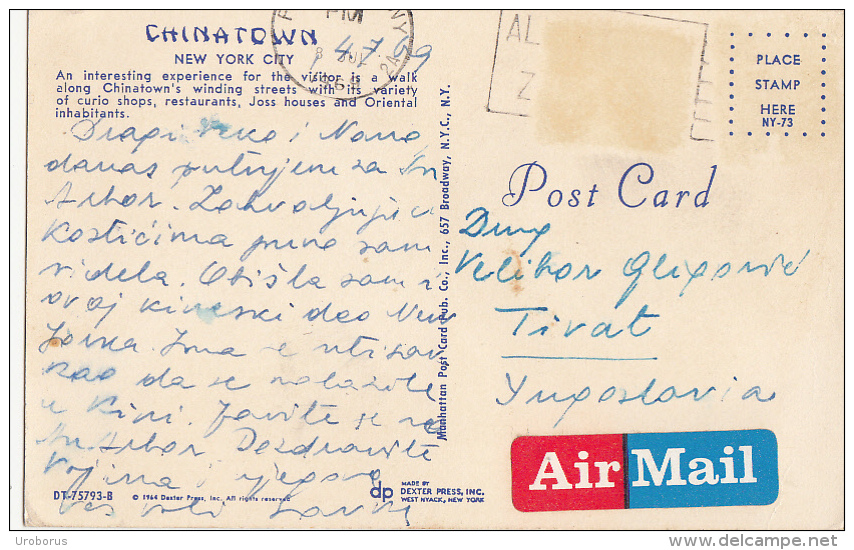 CHINATOWN
NEW YORK CITY
An interesting experience for the visitor is a walk
along Chinatown's winding streets with its variety
of curio shops, restaurants, Joss houses and Oriental
inhabitants.
Dragi i Nano
danas putujem za Ann
Arbor. Zahvaljujući
Kostićima puno sam
videla. Obišla sam i
ovaj kineski deo New
Jorka. Ima se utisak
kao da se nalazite
u Kini. Javite se na
Ann Arbor. Pozdravite
Vojina i njegove
Vas voli
DT-75793-B
© 1964 Dexter Press, Inc. All rights reserved
dp
MADE BY
DEXTER PRESS, INC.
WEST NYACK, NEW YORK
Manhattan Post Card Pub. Co., Inc., 657 Broadway, N.Y.C., N.Y.
PM
NY
4 7 69
AL
Z
PLACE
STAMP
HERE
NY-73
Post Card
Drug
Velibor Gligorić
Tivat
Yugoslavia
Air Mail
© Uroborus
delcampe.net